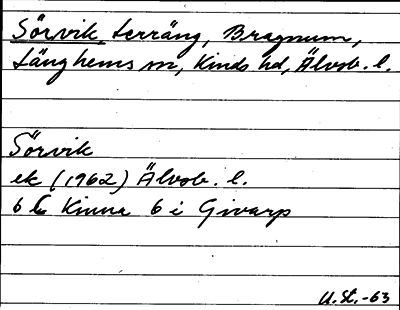 Sörvik terräng, Bragnum,
Länghems sn, Kinds hd, Älvsb. l.
Sörvik
ek (1962) Älvsb. l.
6 Kinna 6 i Givarp
U. St. -63